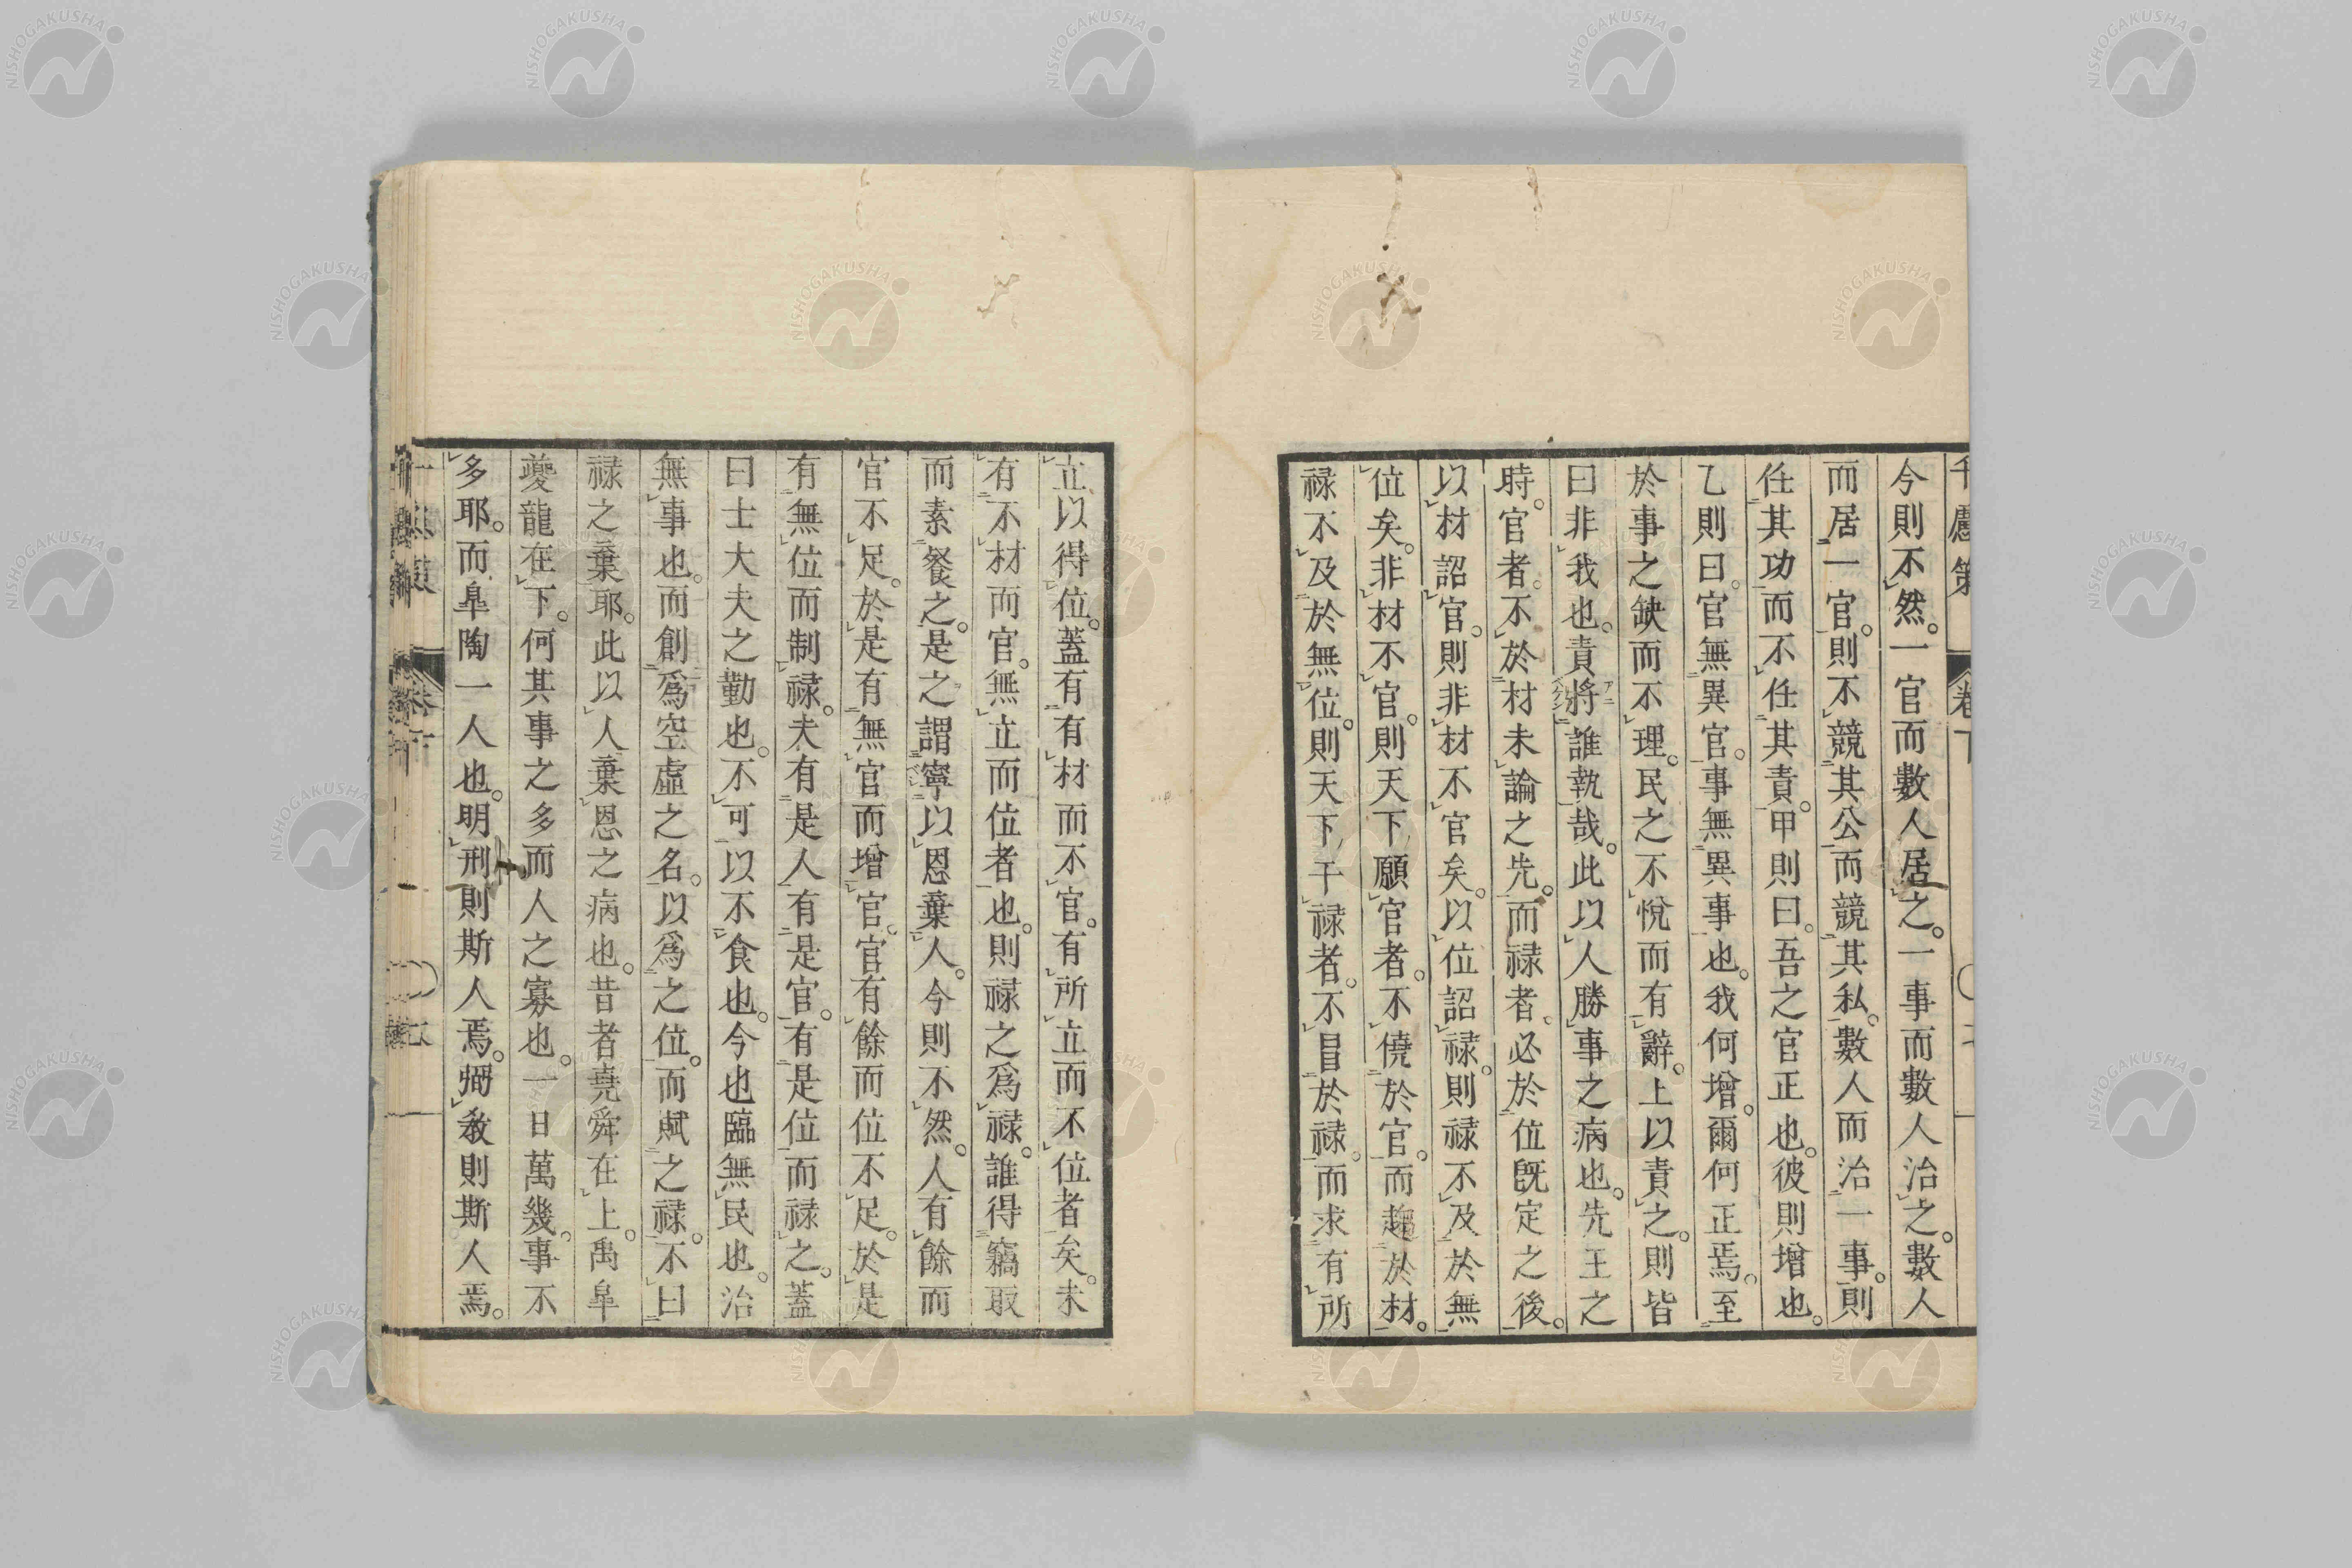 千慮策 卷下
今則不然。一官而數人居之。一事而數人治之。數人
而居一官。則不競其公而競其私。數人而治一事。則
任其功而不任其責。甲則曰。吾之官正也。彼則增也。
乙則曰。官無異官。事無異事也。我何增。爾何正焉。至
於事之缺而不理。民之不悅而有辭。上以責之。則皆
曰非我也。責將誰執哉。此以人勝事之病也。先王之
時。官者。不於材未論之先。而祿者。必於位既定之後。
以材詔官。則非材不官矣。以位詔祿。則祿不及於無
位矣。非材不官。則天下願官者。不僥於官。而趨於材。
祿不及於無位。則天下干祿者。不冒於祿。而求有所
立以得位。蓋有有材而不官。有所立而不位者矣。未
有不材而官。無立而位者也。則祿之爲祿。誰得竊取
而素餐之。是之謂寧以恩棄人。今則不然。人有餘而
官不足。於是有無官而增官。官有餘而位不足。於是
有無位而制祿。夫有是人有是官。有是位而祿之。蓋
曰士大夫之勤也。不可以不食也。今也臨無民也。治
無事也。而創爲空虛之名。以爲之位。而賦之祿。不曰
祿之棄耶。此以人棄恩之病也。昔者堯舜在上。禹皐
夔龍在下。何其事之多而人之寡也。一日萬幾。事不
多耶。而皐陶一人也。明刑則斯人焉。弼教則斯人焉。
NISHOGAKUSHA